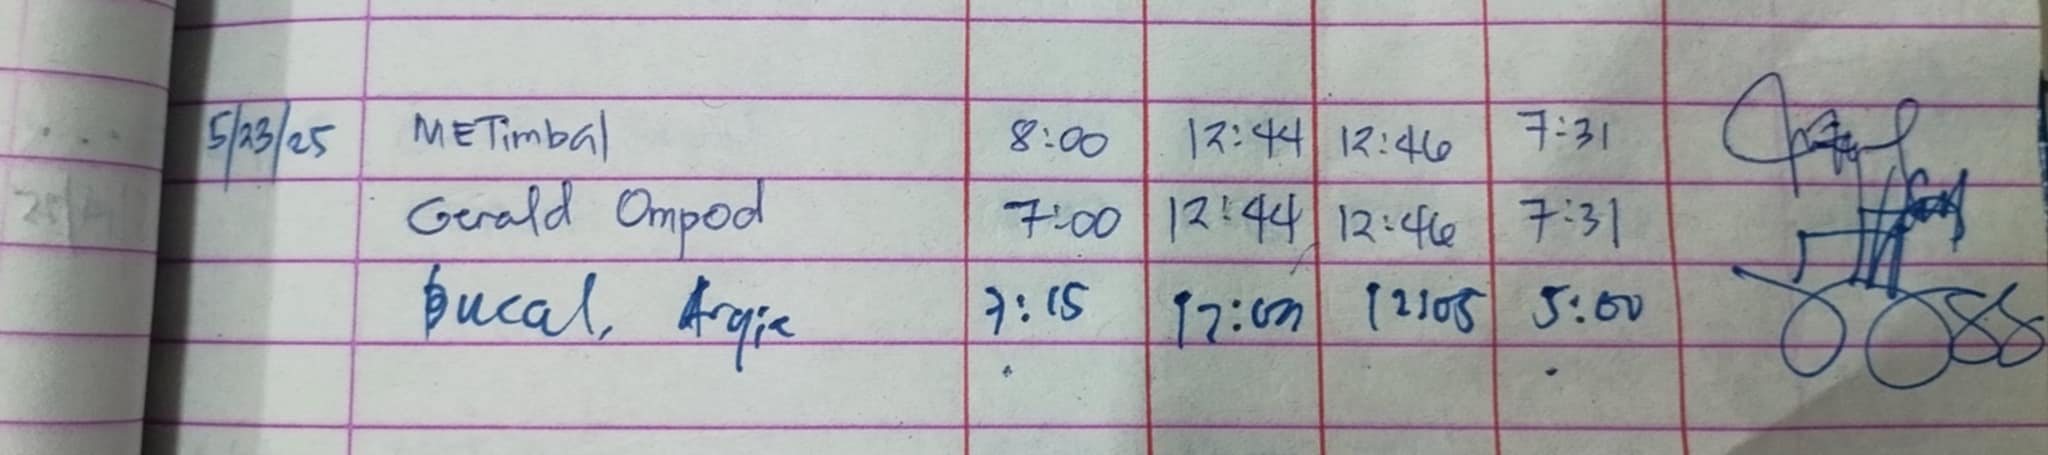 5/23/25 METimbal 8:00 12:44 12:46 7:31
Gerald Ompod 7:00 12:44 12:46 7:31
Bucal, Argie 7:15 12:00 12:05 5:00